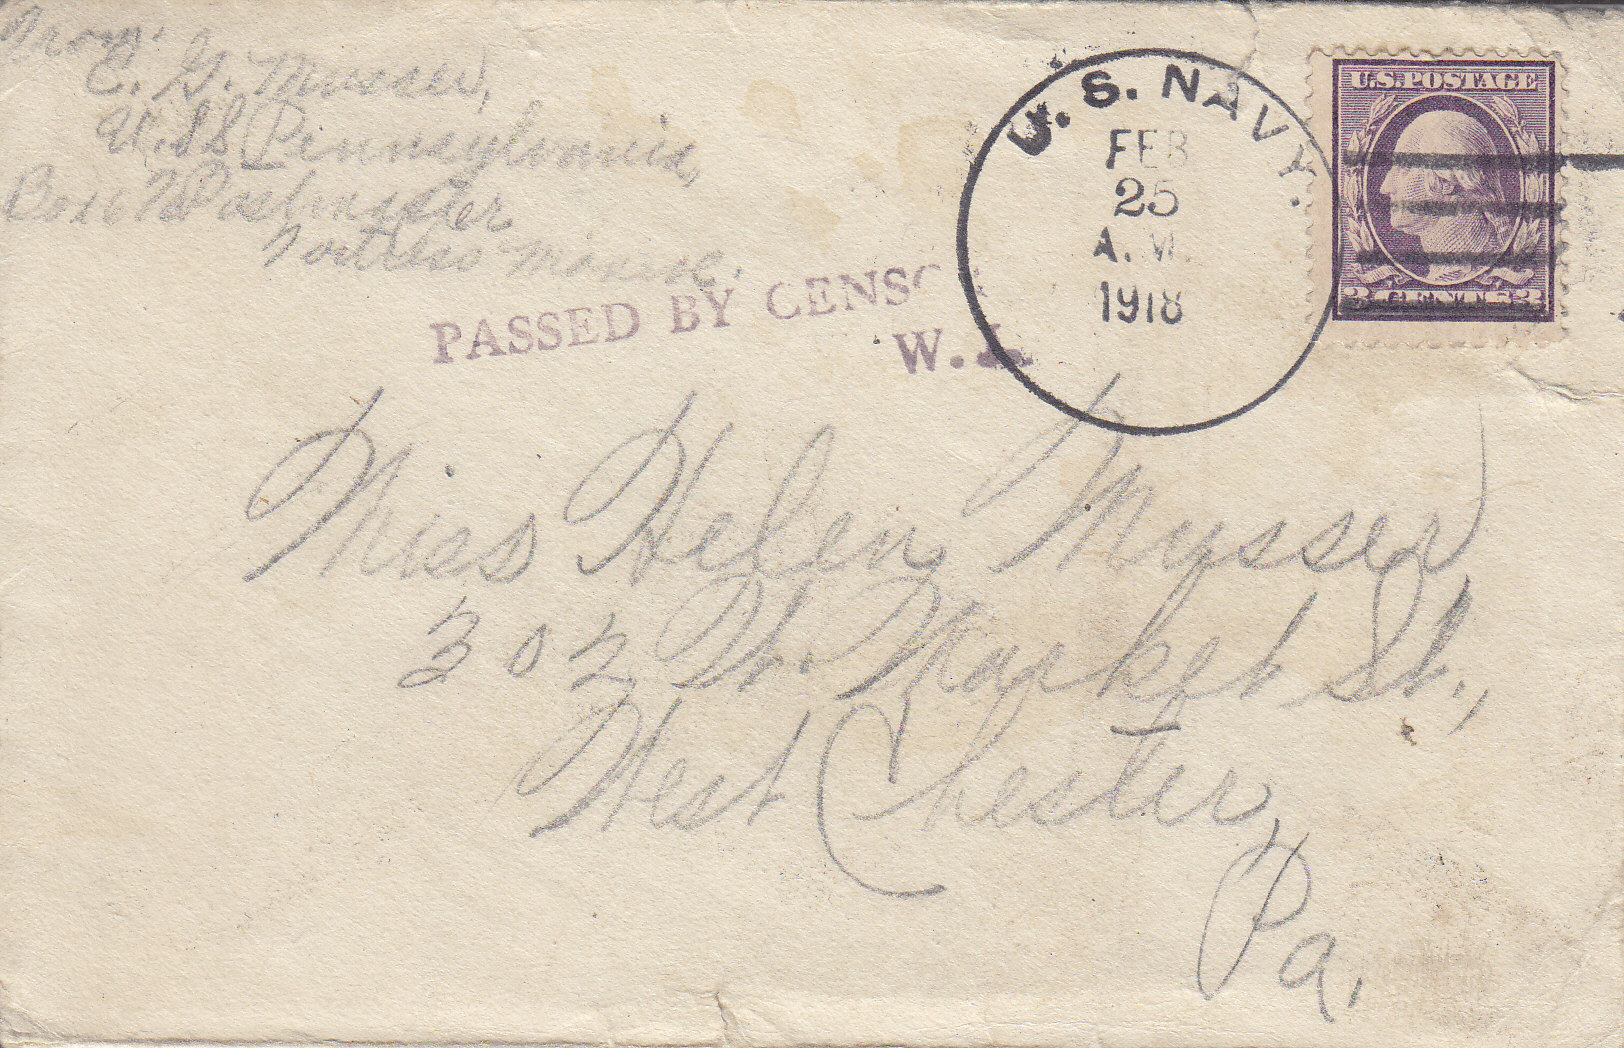 From:
C. G. Musser,
U.S.S. Pennsylvania,
Postmaster
Fortress Monroe.
PASSED BY CENSO
W.
U. S. NAVY.
FEB
25
A. M.
1918
U.S. POSTAGE
3 CENTS 3
Miss Helen Musser
302 W. Market St.,
West Chester,
Pa.